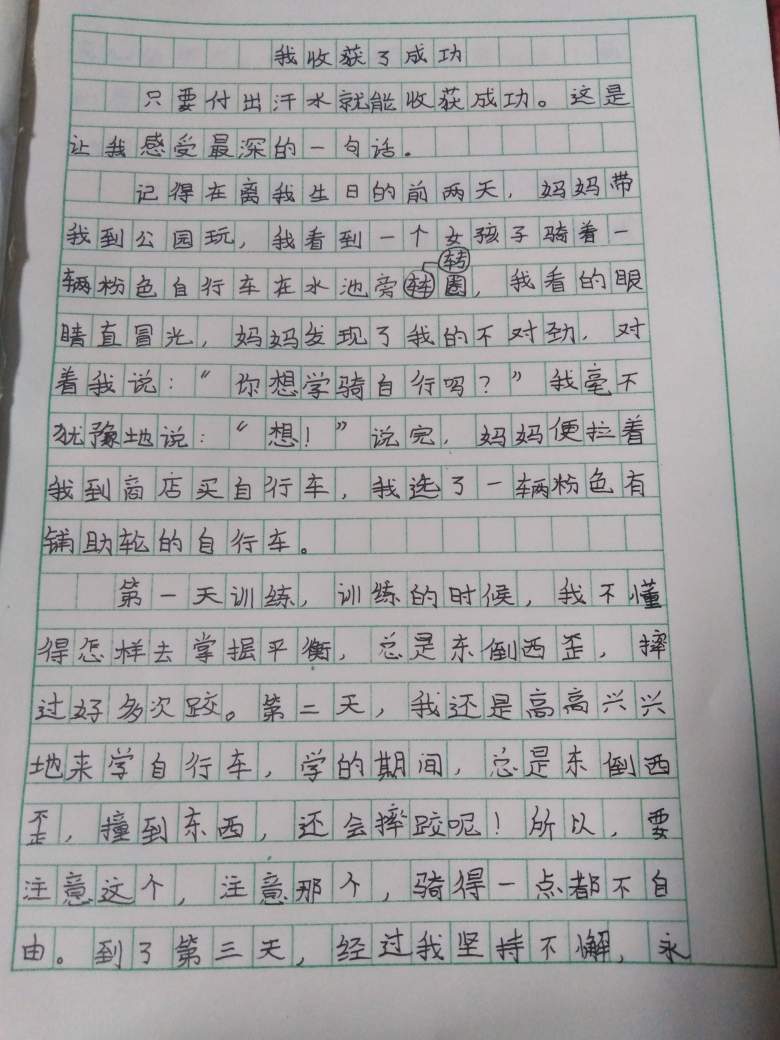 我收获了成功
只要付出汗水就能收获成功。这是
让我感受最深的一句话。
记得在离我生日的前两天，妈妈带
我到公园玩，我看到一个女孩子骑着一
辆粉色自行车在水池旁转圈，我看的眼
睛直冒光，妈妈发现了我的不对劲，对
着我说：“你想学骑自行吗？”我毫不
犹豫地说：“想！”说完，妈妈便拉着
我到商店买自行车，我选了一辆粉色有
辅助轮的自行车。
第一天训练，训练的时候，我不懂
得怎样去掌握平衡，总是东倒西歪，摔
过好多次跤。第二天，我还是高高兴兴
地来学自行车，学的期间，总是东倒西
歪，撞到东西，还会摔跤呢！所以，要
注意这个，注意那个，骑得一点都不自
由。到了第三天，经过我坚持不懈，永